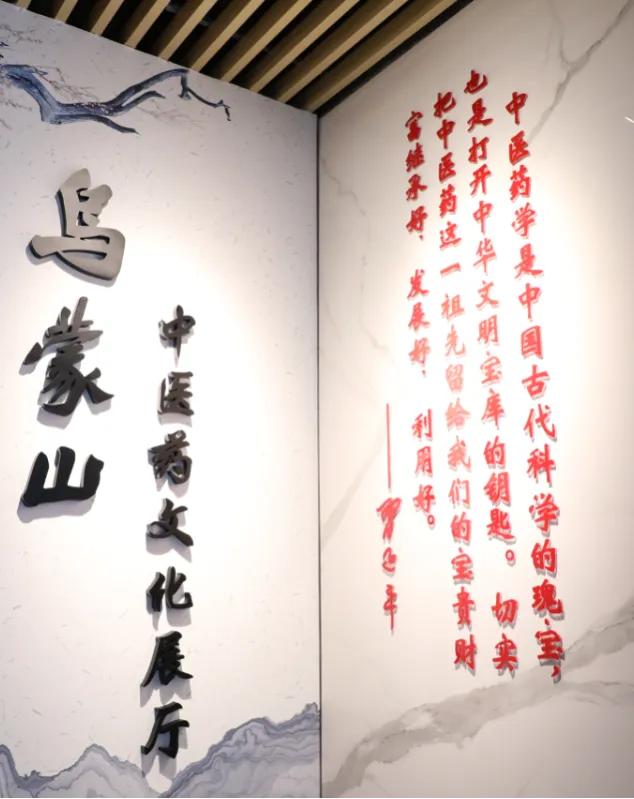 乌蒙山
中医药文化展厅
中医药学是中国古代科学的瑰宝,
也是打开中华文明宝库的钥匙。切实
把中医药这一祖先留给我们的宝贵财
富继承好、发展好、利用好。
——习近平